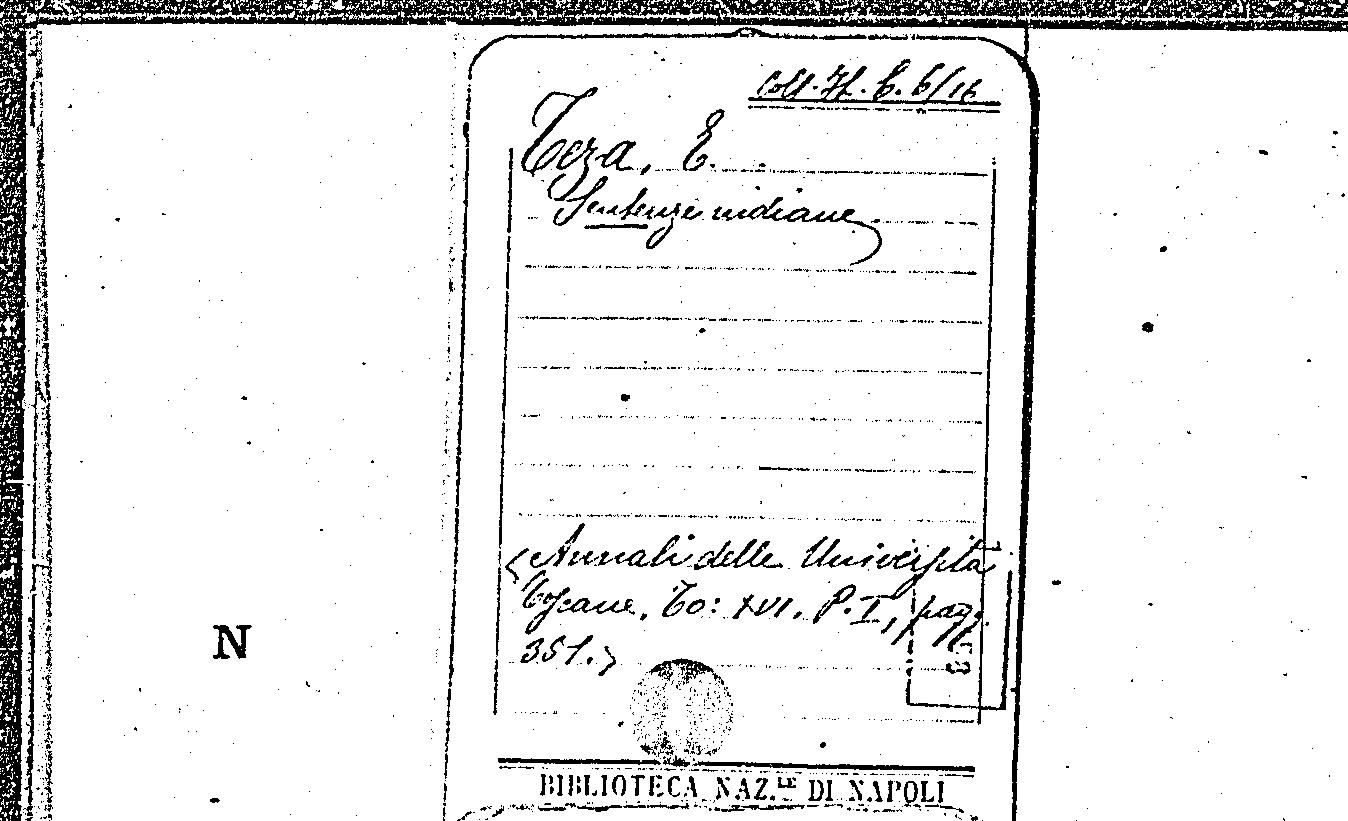 Coll. It. C. 6/16
Teza, E.
Sentenze indiane.
<Annali delle Università
Toscane. To: XVI. P. I, pag.
351.>
N
BIBLIOTECA NAZ.LE DI NAPOLI